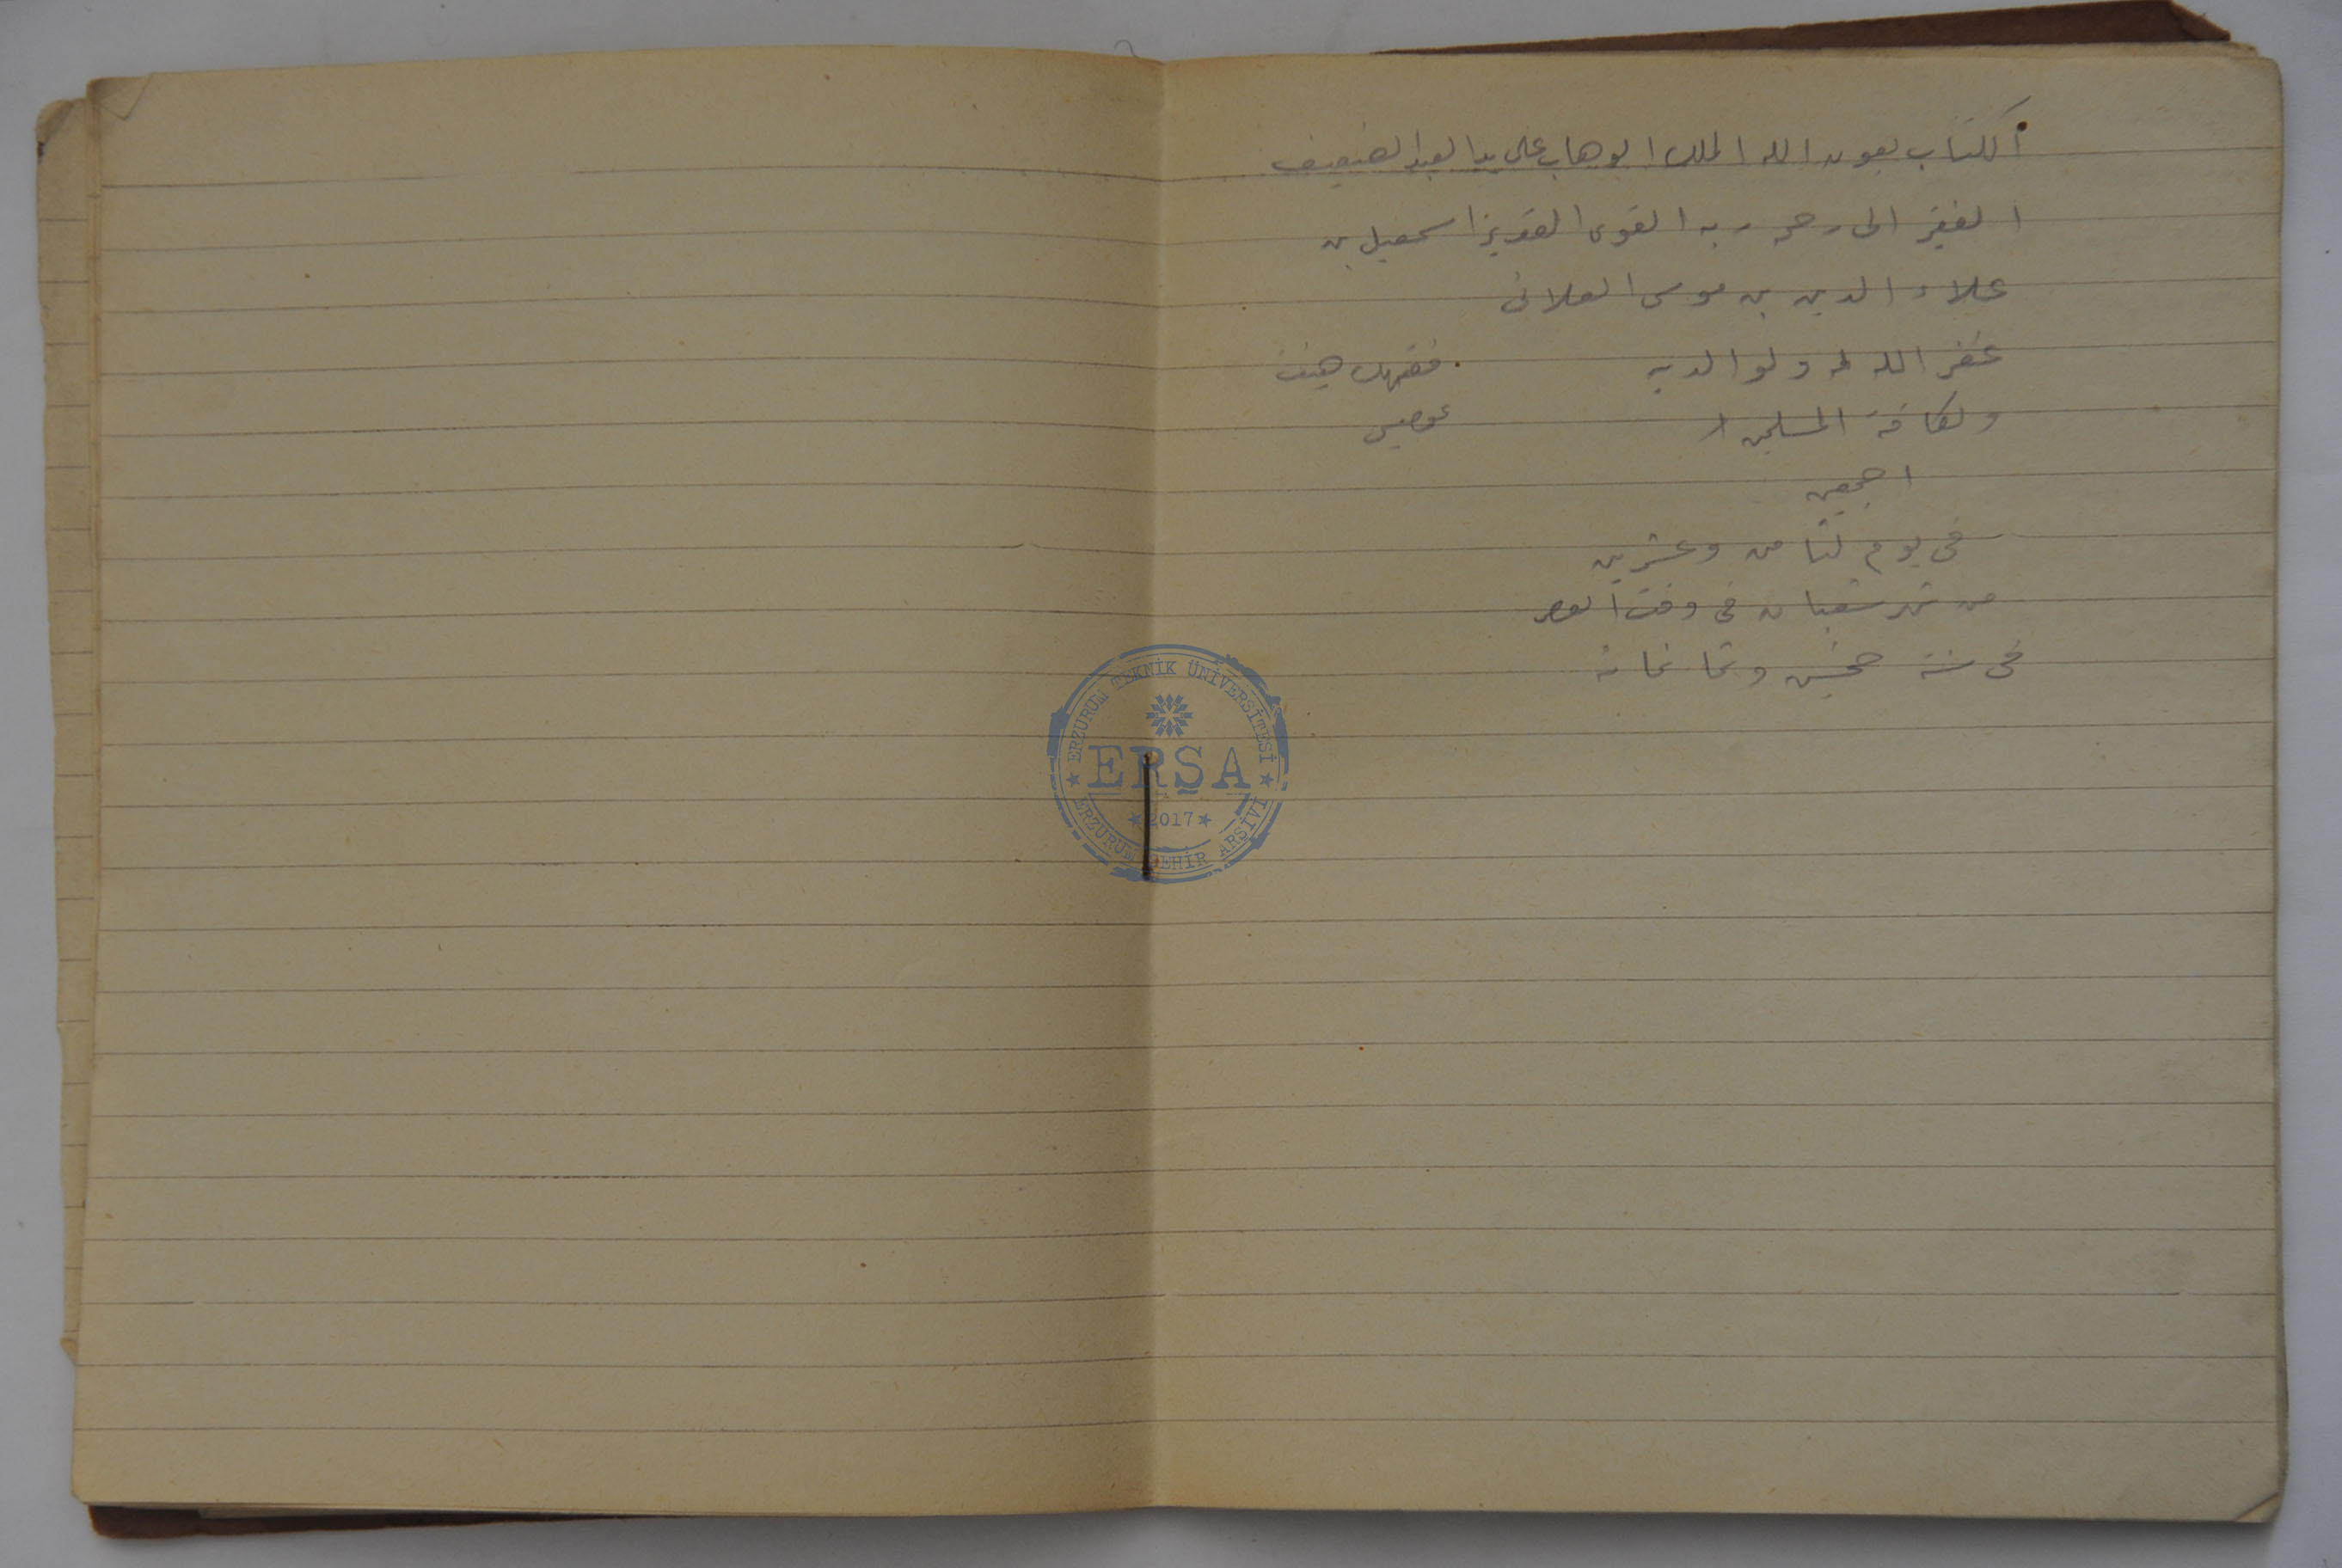 الكتاب بعون الله الملك الوهاب على يد العبد الضعيف
الفقير الى رحمة ربه القوى القدير اسمعيل بن
علاء الدين بن موسى العلائى
غفر الله له ولوالديه
ولكافة المسلمين
اجمعين
فى يوم ثامن وعشرين
من شهر شعبان فى وقت العصر
فى سنة خمسين وثمانمائة
ERZURUM TEKNİK ÜNİVERSİTESİ
ERŞA
2017
ERZURUM ŞEHİR ARŞİVİ